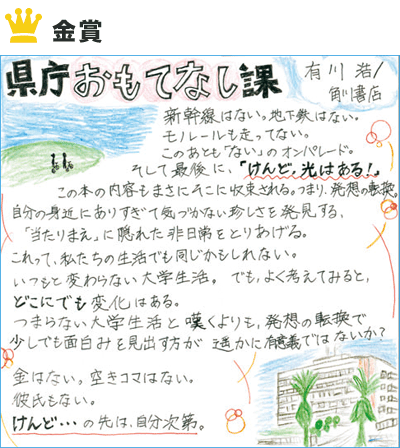 金賞
県庁おもてなし課
有川 浩/
角川書店
新幹線はない。地下鉄はない。
モノレールも走ってない。
このあとも「ない」のオンパレード。
そして最後に、「けんど、光はある!」
この本の内容もまさにそこに収束される。つまり、発想の転換。
自分の身近にありすぎて気づかない珍しさを発見する、
「当たりまえ」に隠れた非日常をとりあげる。
これって、私たちの生活でも同じかもしれない。
いつもと変わらない大学生活。でも、よく考えてみると、
どこにでも変化はある。
つまらない大学生活と嘆くよりも、発想の転換で
少しでも面白みを見出す方が 遥かに有意義ではないか?
金はない。空きコマはない。
彼氏もない。
けんど…の先は、自分次第。